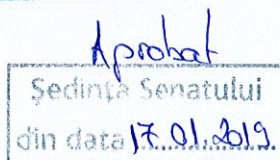 Aprobat
Ședința Senatului
din data 17.01.2019.